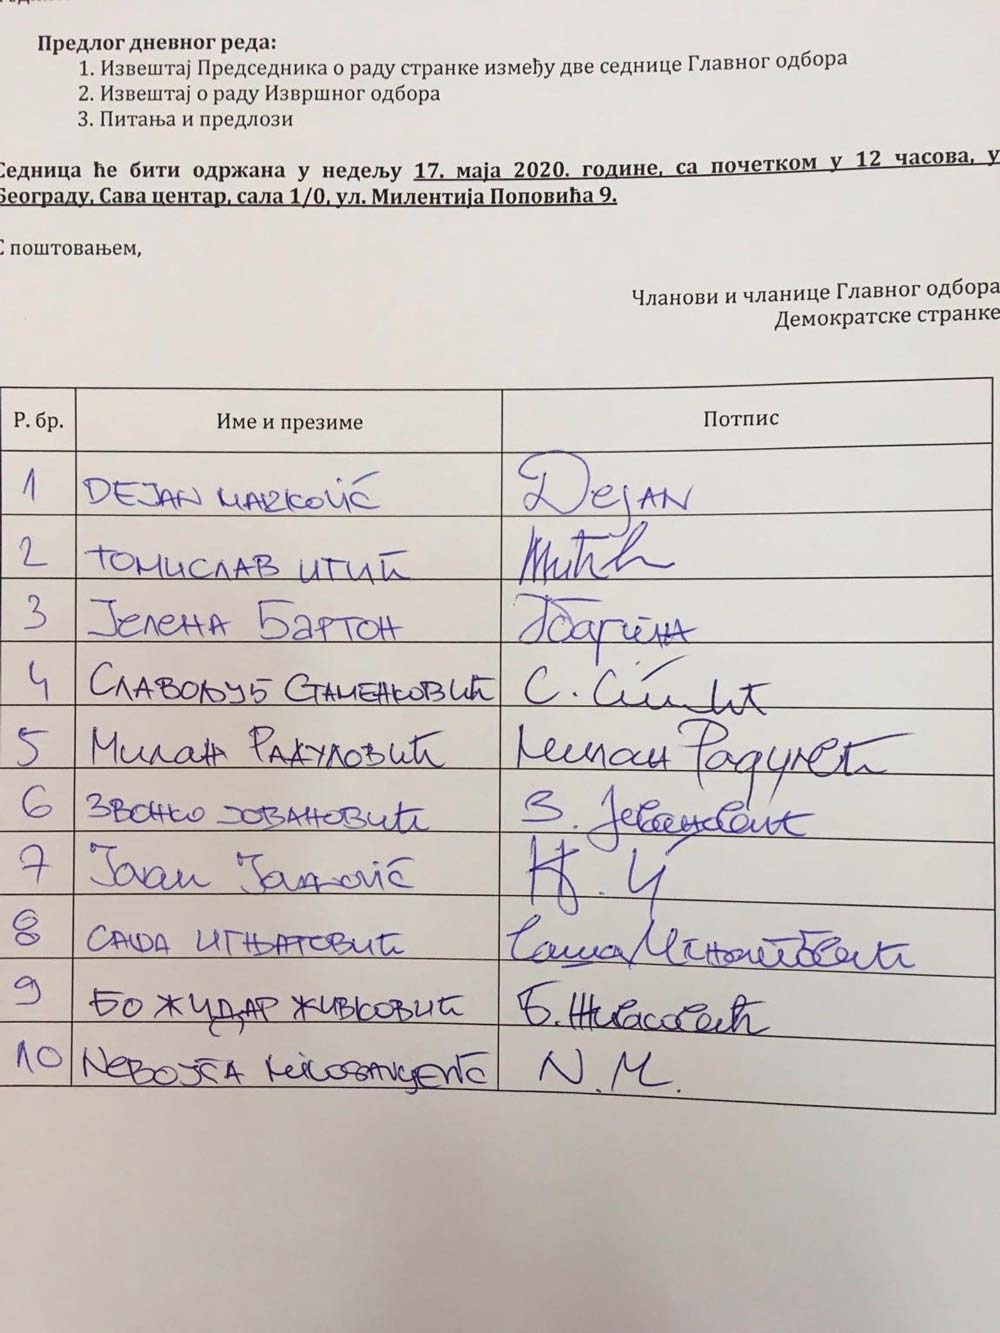 Предлог дневног реда:
1. Извештај Председника о раду странке између две седнице Главног одбора
2. Извештај о раду Извршног одбора
3. Питања и предлози
Седница ће бити одржана у недељу 17. маја 2020. године, са почетком у 12 часова, у
Београду, Сава центар, сала 1/0, ул. Милентија Поповића 9.
С поштовањем,
Чланови и чланице Главног одбора
Демократске странке
Р. бр. Име и презиме Потпис
1 DEJAN MARKOVIĆ Dejan
2 ТОМИСЛАВ
3 Јелена Бартон
4 Славољуб Стаменковић С.
5 Милан Радуловић Милан
6 Звонко Јовановић З.
7
8 САША ИГЊАТОВИЋ Саша Игњатовић
9 БОЖИДАР ЖИВКОВИЋ Б.
10 NEBOJŠA N.M.